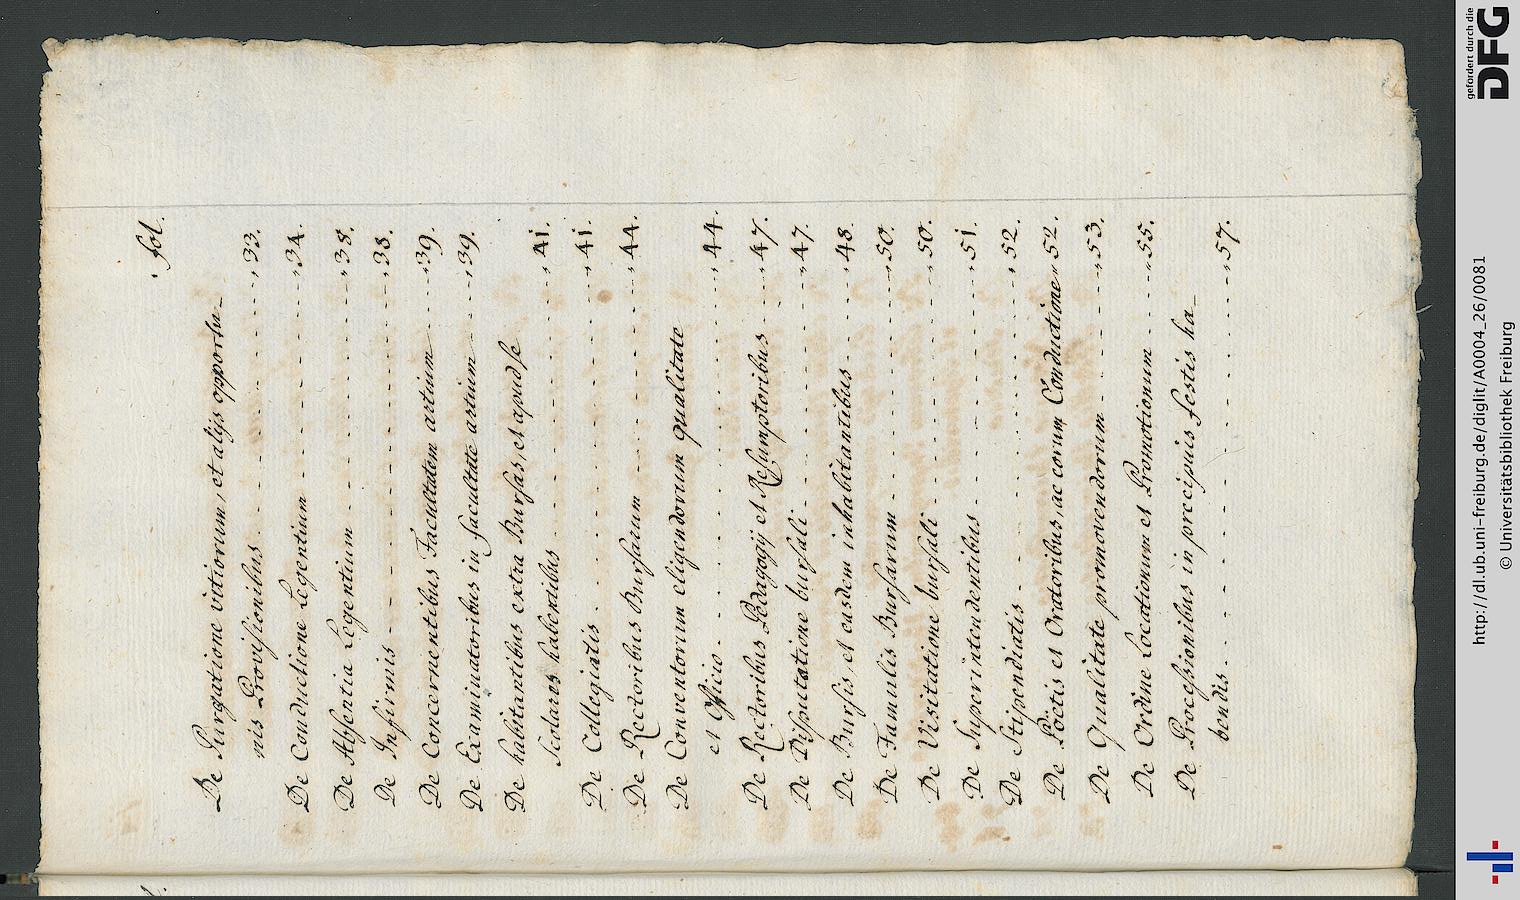 fol.
De Purgatione vitiorum, et alijs opportu-
nis Provisionibus - - - - - - - 33.
De Conductione Legentium - - - - - - - 34.
De Absentia Legentium - - - - - - - 38.
De Infirmis - - - - - - - 38.
De Concernentibus Facultatem artium - - - 39.
De Examinatoribus in facultate artium - - - 39.
De habitantibus extra Bursas, et apud se
Scolares habentibus - - - - - - - 41.
De Collegiatis - - - - - - - 41.
De Rectoribus Bursarum - - - - - - - 44.
De Conventorum eligendorum qualitate
et Officio - - - - - - - 44.
De Rectoribus Pedagogij et Resumptoribus - - - 47.
De Disputatione bursali - - - - - - - 47.
De Bursis, et easdem inhabitantibus - - - - 48.
De Famulis Bursarum - - - - - - - 50.
De Visitatione bursali - - - - - - - 50.
De Superintendentibus - - - - - - - 51.
De Stipendiatis - - - - - - - 52.
De Poëtis et Oratoribus, ac eorum Conductione 52.
De Qualitate promovendorum - - - - - - - 53.
De Ordine Locationum et Promotionum - - - - 55.
De Processionibus in precipuis festis ha-
bendis - - - - - - - 57.
gefördert durch die
DFG
http://dl.ub.uni-freiburg.de/diglit/A0004_26/0081
© Universitätsbibliothek Freiburg